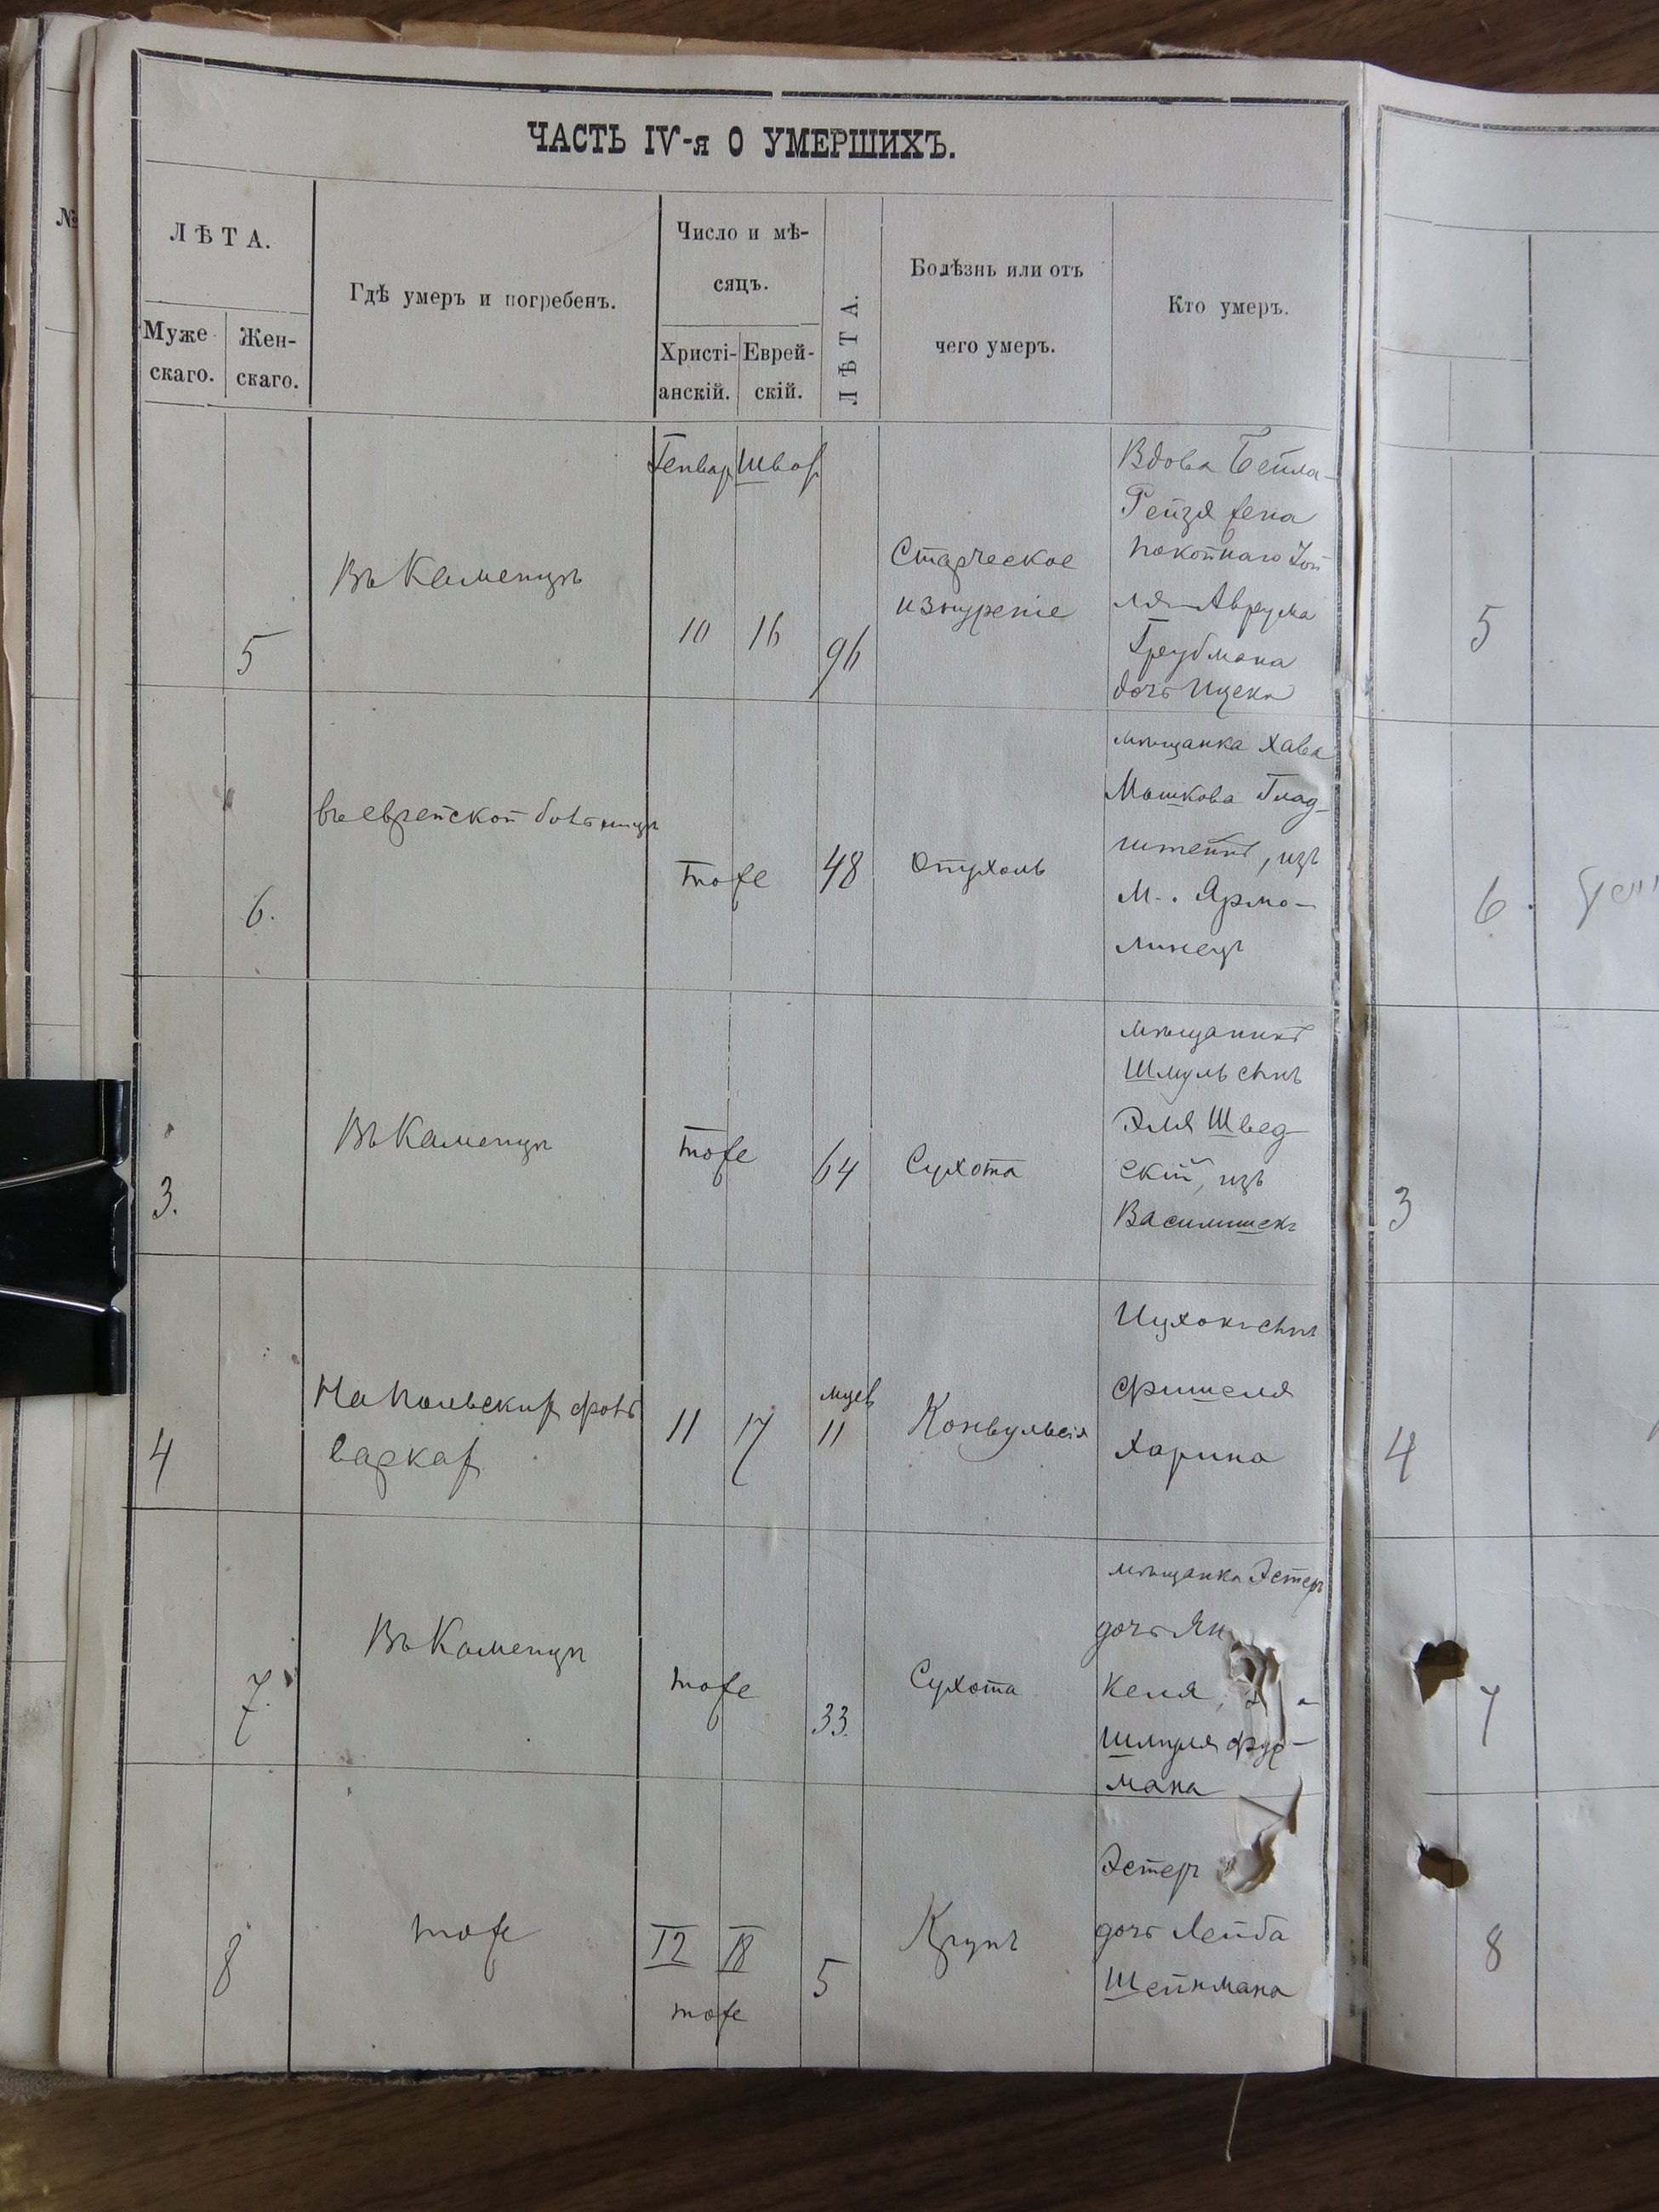 №
ЧАСТЬ IV-я О УМЕРШИХЪ.
ЛѢТА.
Муже-
скаго.
Жен-
скаго.
Гдѣ умеръ и погребенъ.
Число и мѣ-
сяцъ.
Христі-
анскій.
Еврей-
скій.
ЛѢТА.
Болѣзнь или отъ
чего умеръ.
Кто умеръ.
5
Въ Каменцѣ
Генвар Шват
10 16
96
Старческое
изнуреніе
Вдова Бейла-
Рейзя жена
покойнаго Іой
ля-Аврума
Граубмана
дочь Ицека
5
6.
въ еврейской больницѣ
тоже
48
Опухоль
мѣщанка Хава
Мошкова Глад-
штейнъ, изъ
М. Ярмо-
линецъ
6.
3.
Въ Каменцѣ
тоже
64
Сухота
мѣщанинъ
Шмуль сынъ
Эля Швед-
скій, изъ
Василишекъ
3
4
На Польскихъ фоль
варкахъ
11 17
мцев
11
Конвульсія
Ицхокъ сынъ
Фишеля
Харина
4
7.
Въ Каменцѣ
тоже
33.
Сухота
мѣщанка Эстеръ
дочь Ян
келя,
Шмуля Фур-
мана
7
8
тоже
12 18
тоже
5
Крупъ
Эстеръ
дочь Лейба
Шейнмана
8